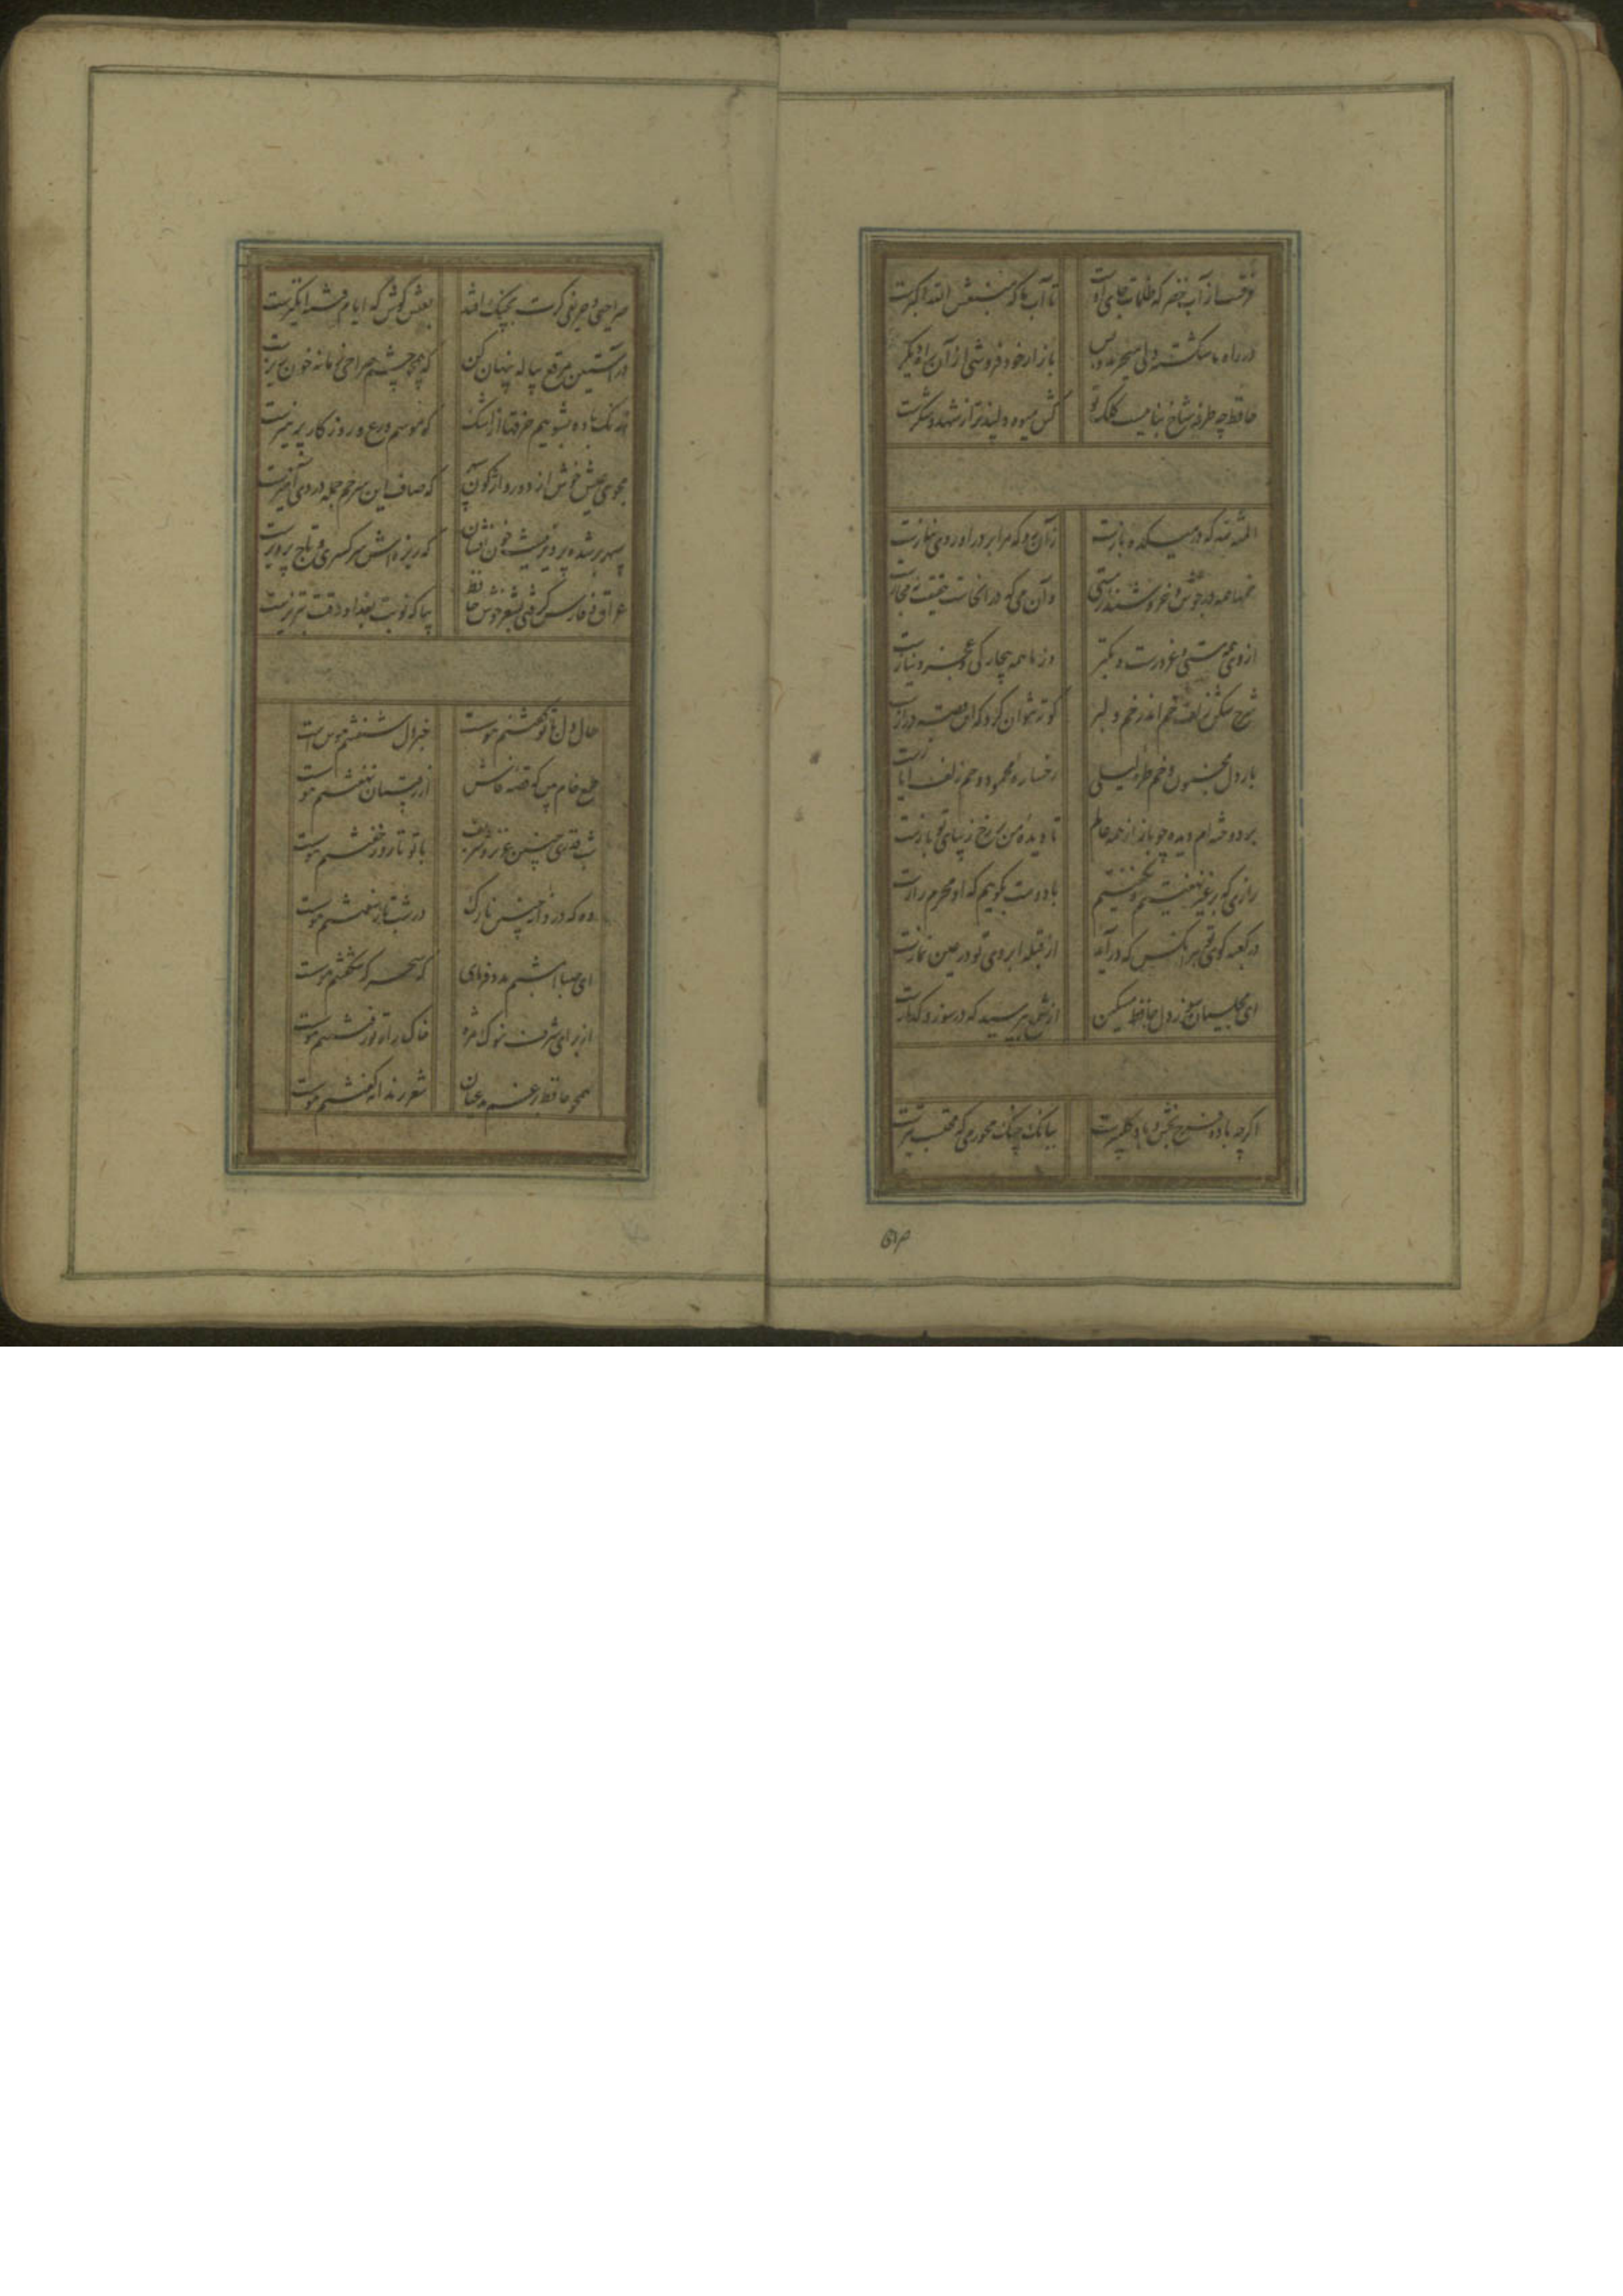 فرقست از آب خضر که ظلمات جای اوست تا آب ما که منبعش الله اکبرست
در راه ما شکسته دلی میخرند و بس بازار خود فروشی از آن راه دیگر
حافظ چه طرفه شاخ نباتیست کلک تو کش میوه دلپذیرتر از شهد و شکرست
المنة لله که در میکده بازست زان رو که مرا بر در او روی نیازست
خمها همه در جوش و خروشند ز مستی وان می که در آنجاست حقیقت نه مجازست
از وی همه مستی و غرورست و تکبر وز ما همه بیچارگی و عجز و نیازست
شرح شکن زلف خم اندر خم دلبر کوته نتوان کرد که این قصه درازست
بار دل مجنون و خم طره لیلی رخساره محمود و خم زلف ایازست
بردوخته‌ام دیده چو باز از همه عالم تا دیده من بر رخ زیبای تو بازست
رازی که بر غیر نهفتیم و نگفتیم با دوست بگوییم که او محرم رازست
در کعبه کوی تو هر آنکس که درآید از قبله ابروی تو در عین نمازست
ای مجلسیان سوز دل حافظ مسکین از شمع بپرسید که در سوز و گدازست
اگرچه باده فرح بخش و باد گلبیزست ببانگ چنگ مخور می که محتسب تیزست
صراحی و حریفی گرت بچنگ افتد بعیش کوش که ایام فتنه انگیزست
در آستین مرقع پیاله پنهان کن که همچو چشم صراحی زمانه خون ریزست
ز رنگ باده بشوییم خرقها از اشک که موسم ورع و روزگار پرهیزست
مجوی عیش خوش از دور واژگون سپهر که صاف این سر خم جمله دردی آمیزست
سپهر بر شده پرویزنیست خون افشان که ریزه‌اش سر کسری و تاج پرویزست
عراق و فارس گرفتی بشعر خوش حافظ بیا که نوبت بغداد و وقت تبریزست
حال دل با تو گفتنم هوست خبر دل شنفتنم هوس است
طمع خام بین که قصه فاش از رقیبان نهفتنم هوست
شب قدری چنین عزیز و شریف با تو تا روز خفتنم هوست
وه که دردانه چنین نازک در شب تار سفتنم هوست
ای صبا امشبم مدد فرمای که سحرگه شکفتنم هوست
از برای شرف بنوک مژه خاک راه تو رفتنم هوست
همچو حافظ برغم مدعیان شعر رندانه گفتنم هوست